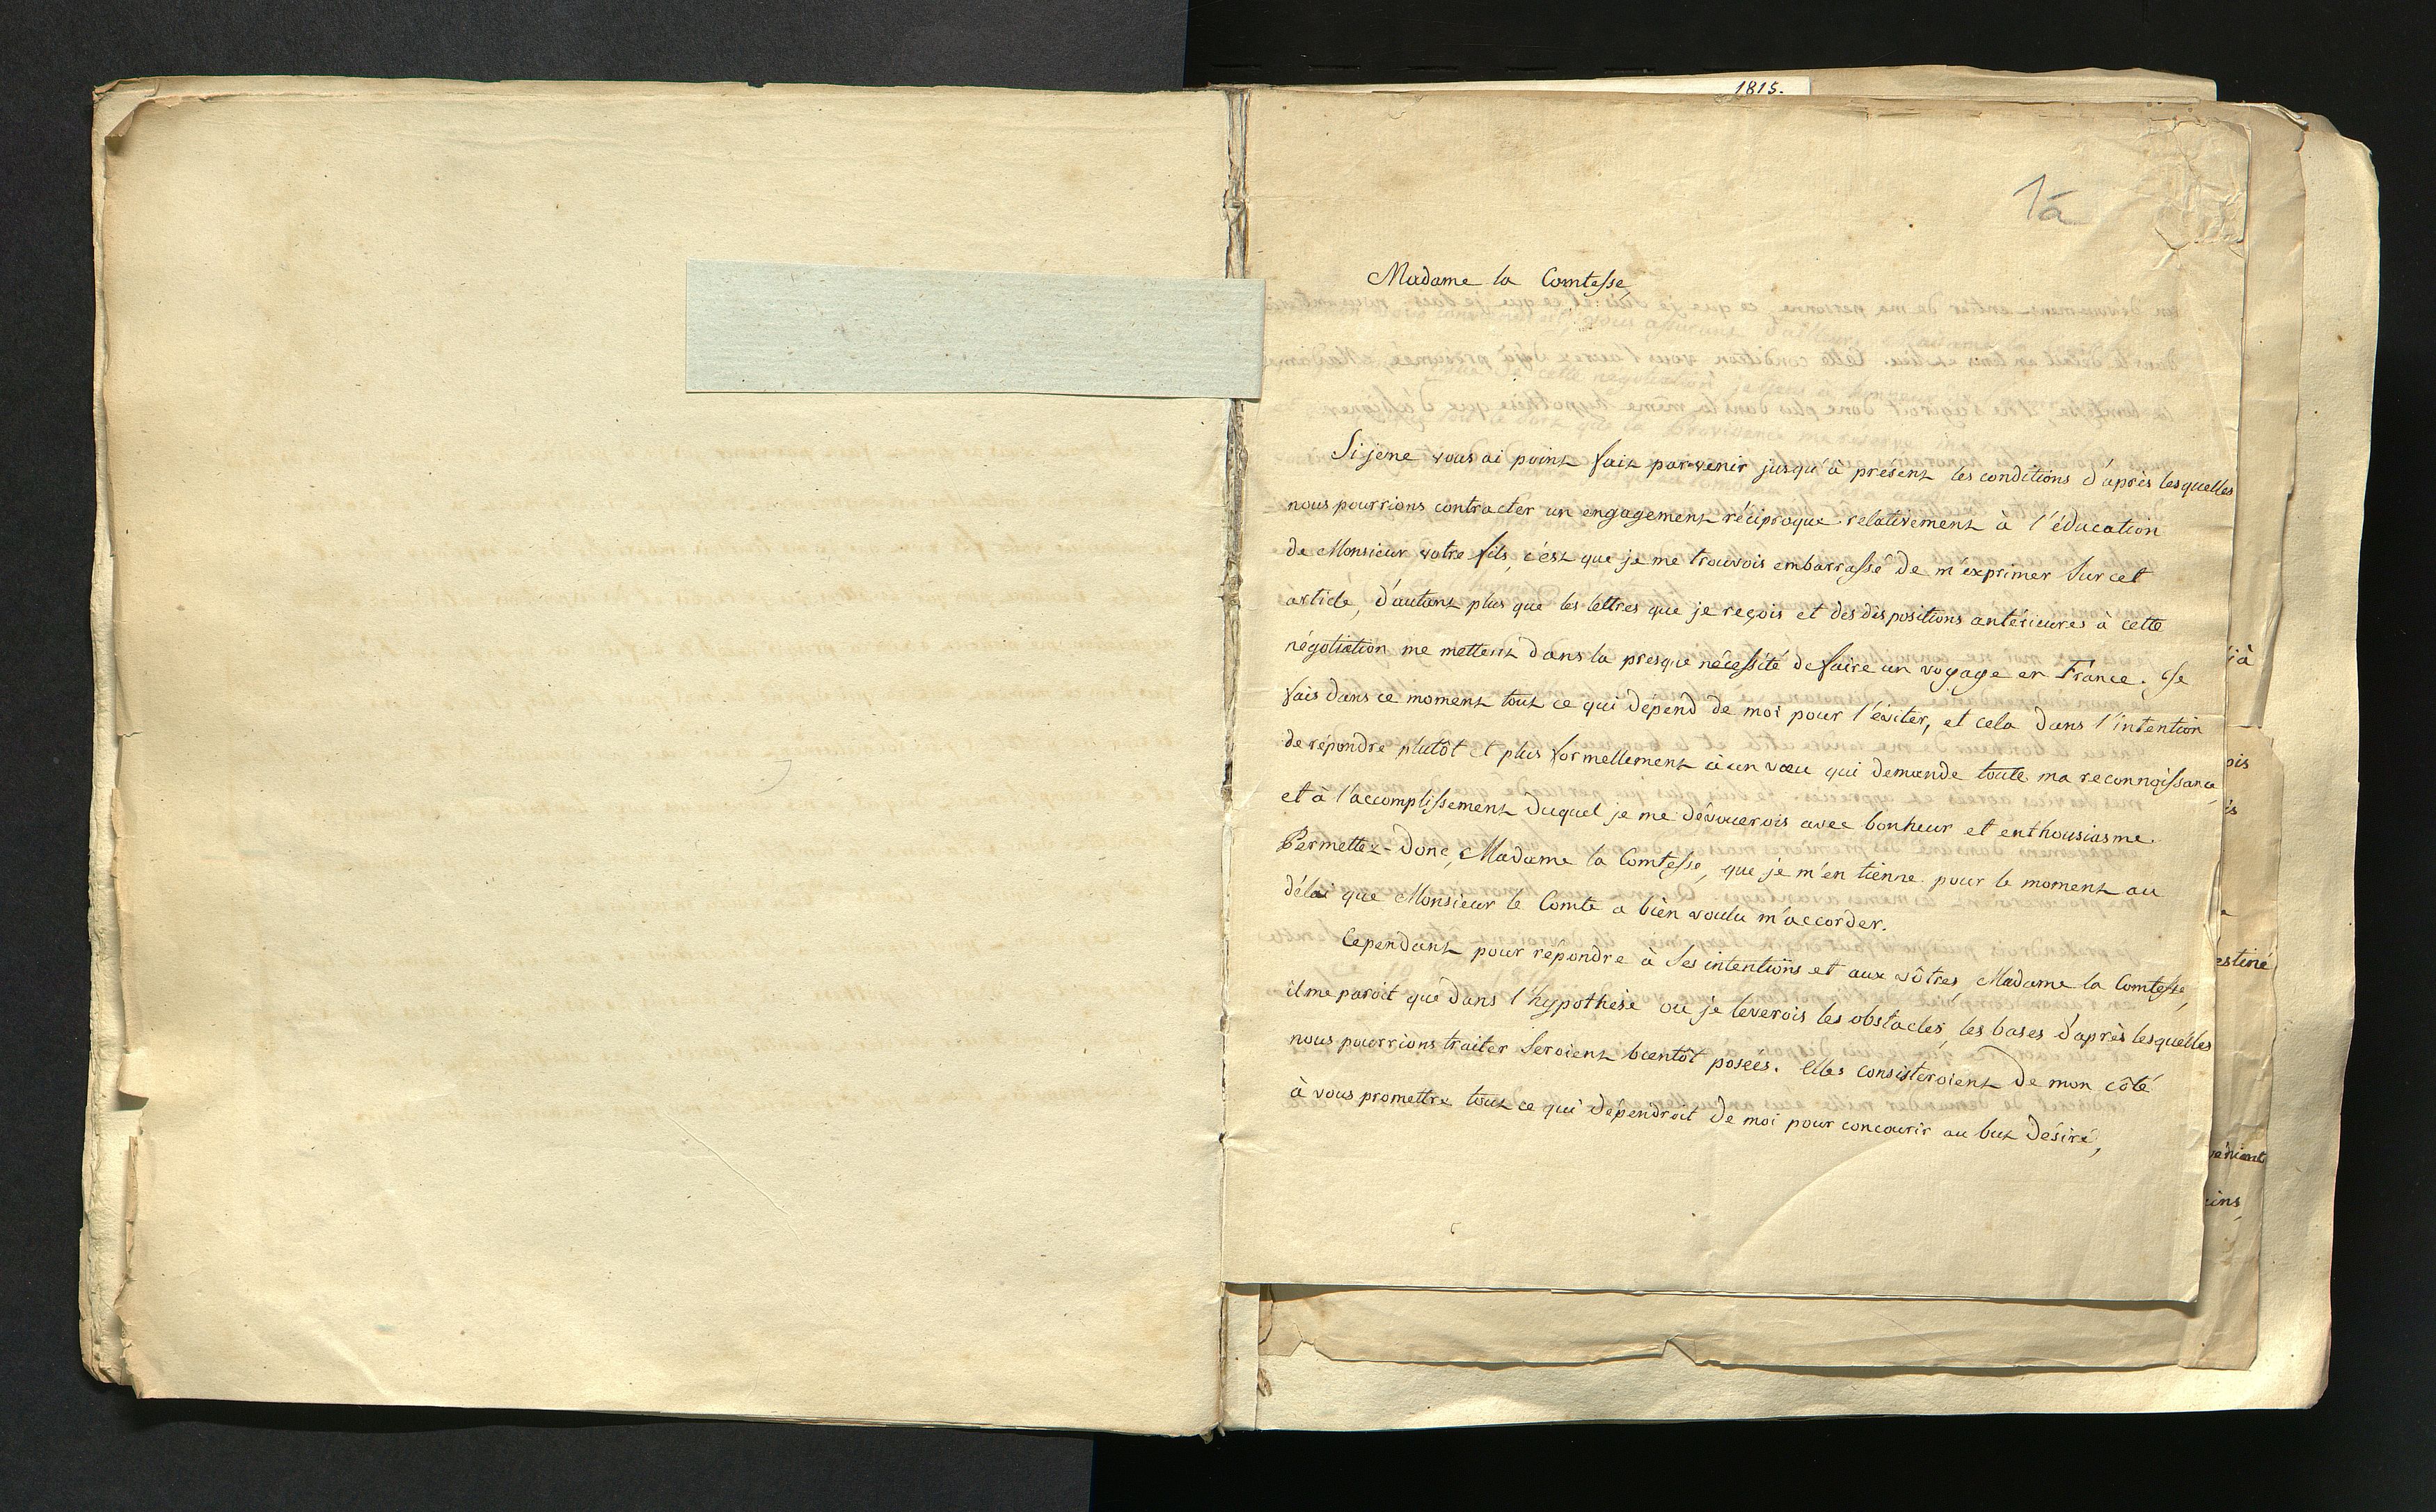 1815.
1a
Madame la Comtesse,
Si je ne vous ai point fait parvenir jusqu'à présent les conditions d'après lesquelles
nous pourrions contracter un engagement réciproque relativement à l'éducation
de Monsieur votre fils, c'est que je me trouvois embarrassé de m'exprimer sur cet
article, d'autant plus que les lettres que je reçois et des dispositions antérieures à cette
négotiation me mettent dans la presque nécessité de faire un voyage en France. Je
fais dans ce moment tout ce qui dépend de moi pour l'éviter, et cela dans l'intention
de répondre plutôt et plus formellement à un vœu qui demande toute ma reconnoissance,
et à l'accomplissement duquel je me dévouerois avec bonheur et enthousiasme.
Permettez-donc, Madame la Comtesse, que je m'en tienne pour le moment au
délai que Monsieur le Comte a bien voulu m'accorder.
Cependant pour répondre à ses intentions et aux vôtres, Madame la Comtesse,
il me paroit que dans l'hypothèse où je leverois les obstacles, les bases d'après lesquelles
nous pourrions traiter seroient bientôt posées. Elles consisteroient de mon côté
à vous promettre tout ce qui dépendroit de moi pour concourir au but désiré,